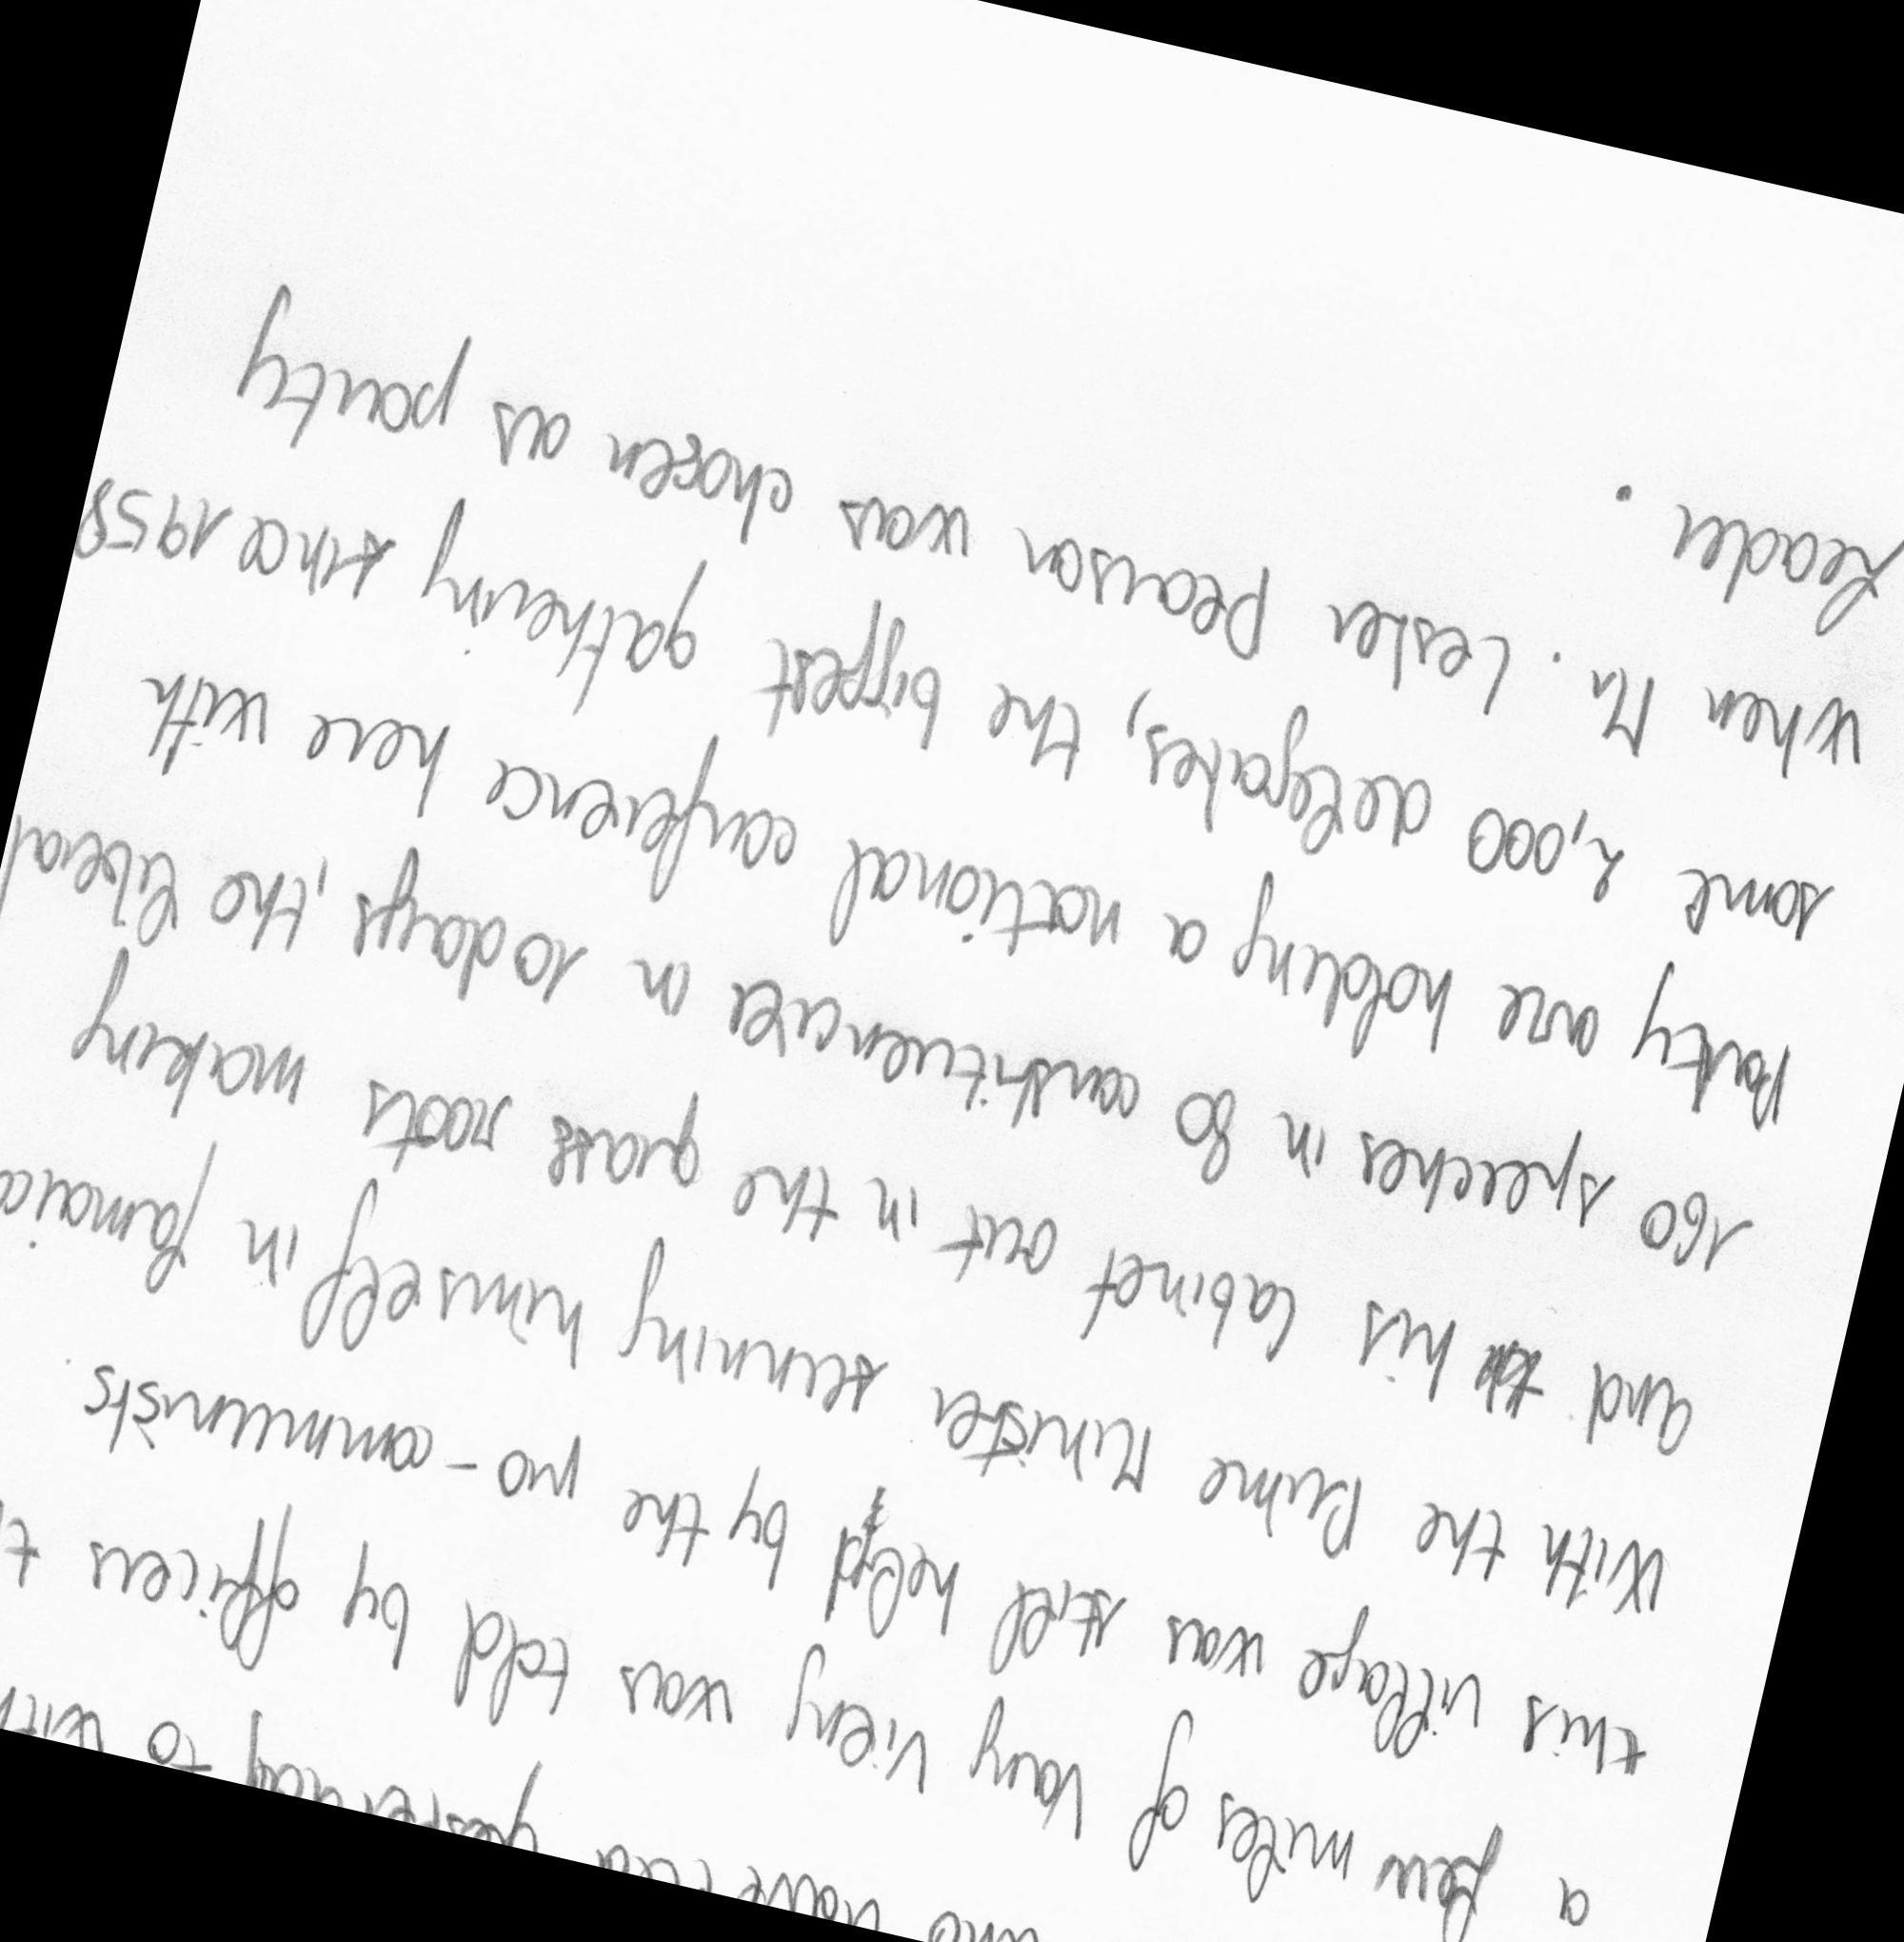 who travelled yesterday to with
a few miles of Vang Vieng was told by officers t
this village was still held by the pro-communists.
With the Prime Minister running himself in Jamaica
and his Cabinet out in the grass roots making
160 speeches in 80 constituencies in 10 days, the Liberal
Party are holding a national conference here with
some 2,000 delegates, the biggest gathering since 1958
when Mr. Lester Pearson was chosen as party
Leader.